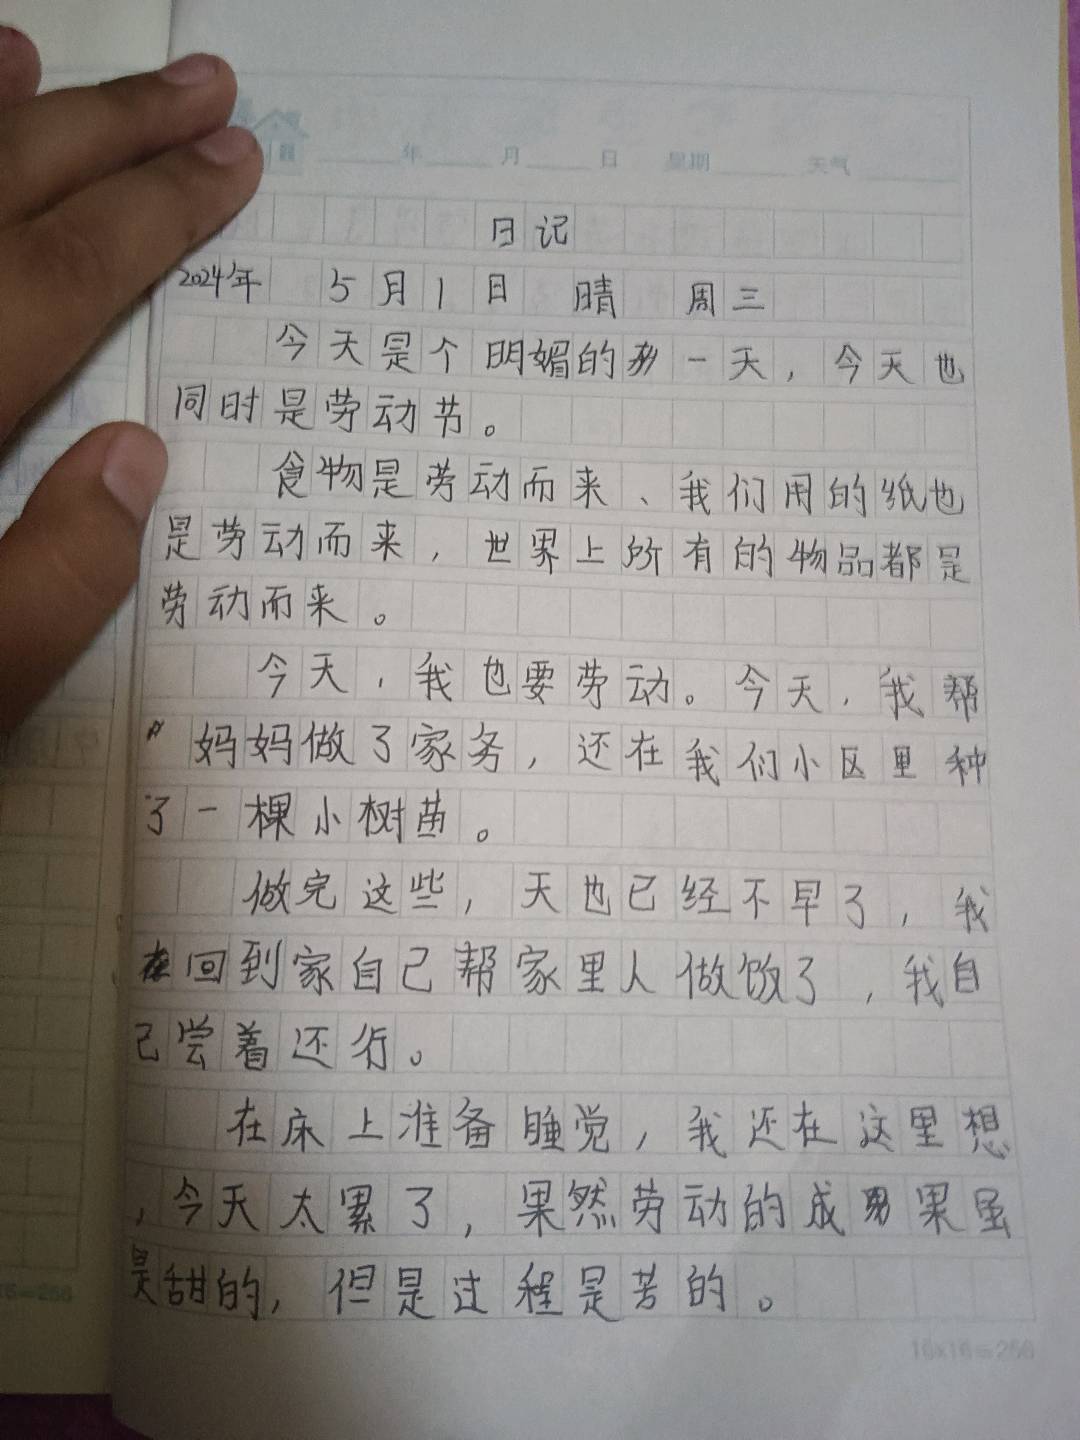 年 月 日 星期 天气
日记
2024年 5月1日 晴 周三
今天是个明媚的一天，今天也
同时是劳动节。
食物是劳动而来、我们用的纸也
是劳动而来，世界上所有的物品都是
劳动而来。
今天，我也要劳动。今天，我帮
妈妈做了家务，还在我们小区里种
了一棵小树苗。
做完这些，天也已经不早了，我
回到家自己帮家里人做饭了，我自
己尝着还行。
在床上准备睡觉，我还在这里想
，今天太累了，果然劳动的成果虽
是甜的，但是过程是苦的。
16×16=256